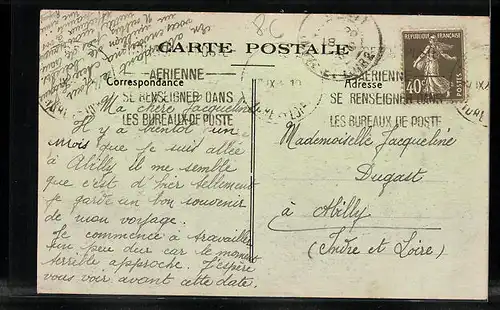 CARTE POSTALE
AÉRIENNE
SE RENSEIGNER DANS
LES BUREAUX DE POSTE
AÉRIENNE
SE RENSEIGNER DANS
LES BUREAUX DE POSTE
40c
POSTES
8C
Correspondance
Adresse
Ma chère Jacqueline
Il y a bientôt un
mois que je suis allée
à Abilly il me semble
que c'est d'hier tellement
je garde un bon souvenir
de mon voyage.
Je commence à travailler
un peu dur car le moment
terrible approche. J'espère
vous voir avant cette date.
Mademoiselle Jacqueline
Dugast
à Abilly
(Indre et Loire)